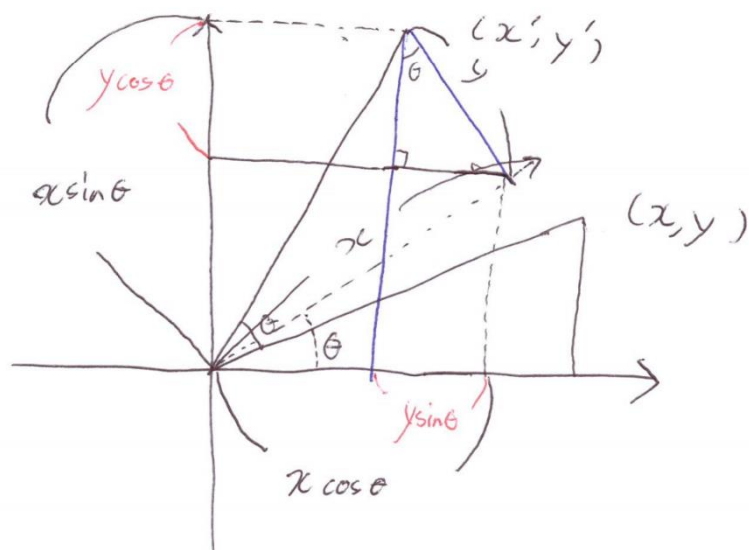 (x', y')
θ
y
y cosθ
x sinθ
x
(x, y)
θ
θ
y sinθ
x cosθ